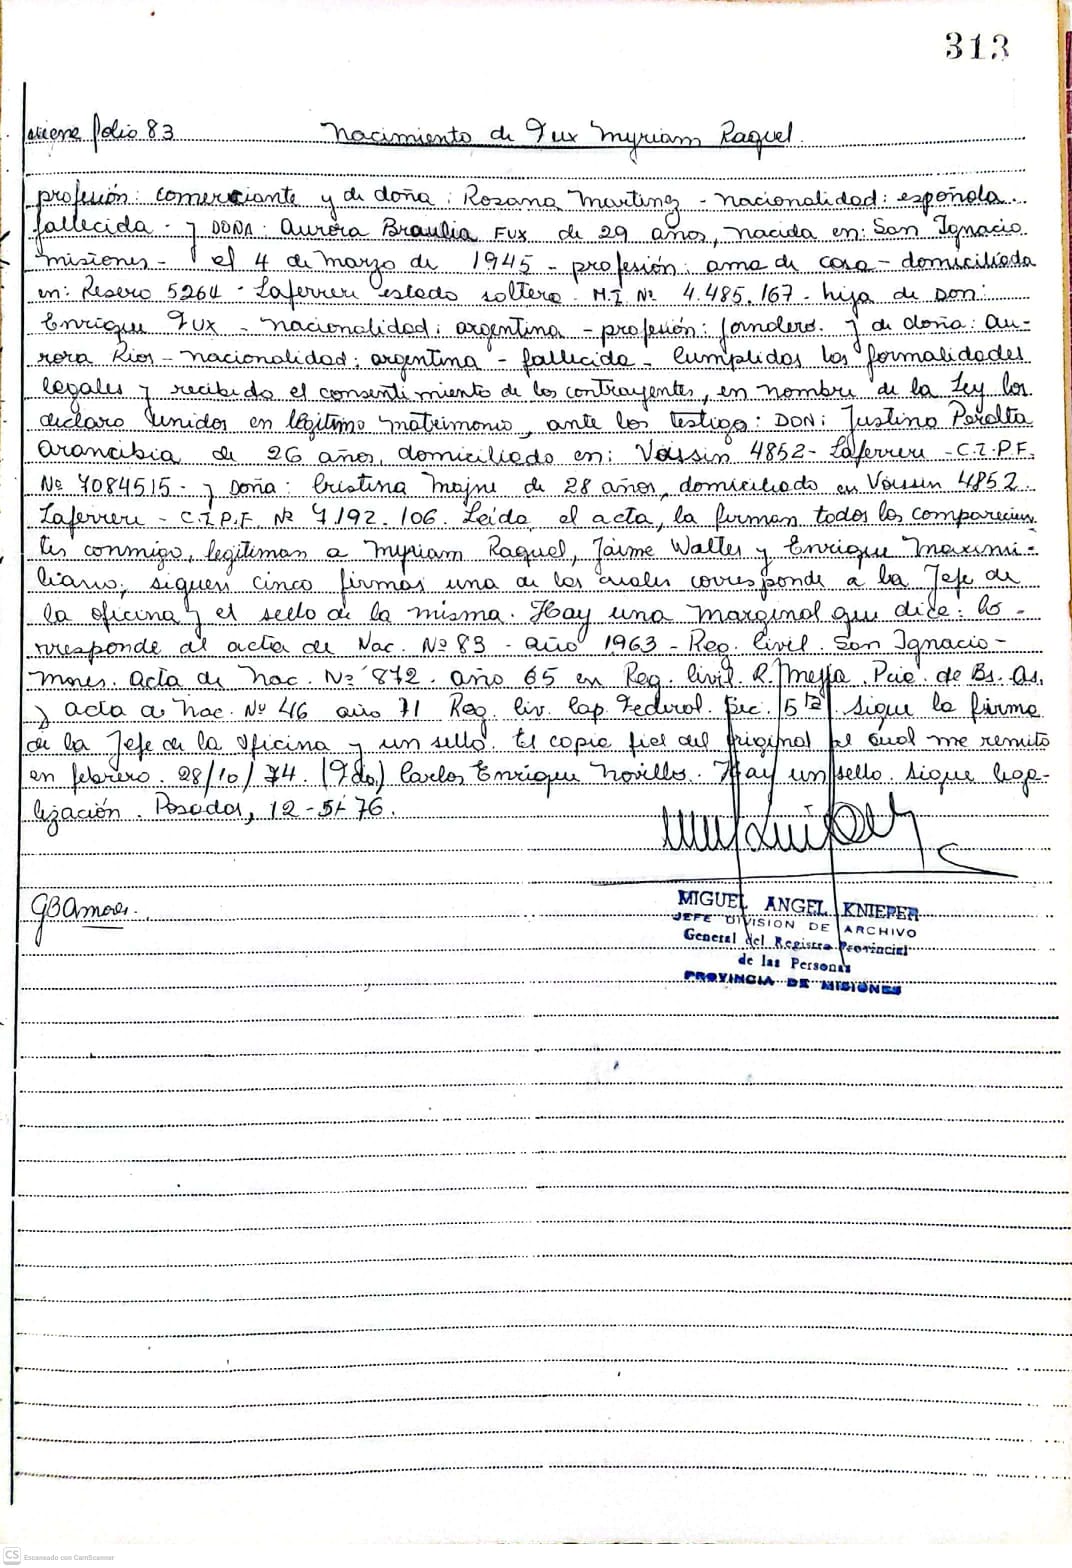 313
viene folio 83 Nacimiento de Fux Myriam Raquel.
profesión: comerciante y de doña: Rosana Martinez - nacionalidad: española.
fallecida. y DOÑA: Aurora Braulia FUX de 29 años, nacida en: San Ignacio
misiones - el 4 de marzo de 1945 - profesión: ama de casa - domiciliada
en: Resero 5264 - Laferrere estado soltera. M.I. Nº 4.485.167 - hija de DON:
Enrique Fux - nacionalidad: argentina - profesión: jornalero. y de doña: Au-
rora Rios - nacionalidad: argentina - fallecida - Cumplidas las formalidades
legales y recibido el consentimiento de los contrayentes, en nombre de la Ley los
declaro unidos en legítimo matrimonio, ante los testigo: DON: Justino Peralta
Arancibia de 26 años, domiciliado en: Voissin 4852 - Laferrere - C.I.P.F.
Nº 7084515 - y Doña: Cristina de 28 años, domiciliado en Voissin 4852.
Laferrere - C.I.P.F. Nº 7.192.106. Leída el acta, la firman todos los comparecien
tes conmigo, legitiman a Myriam Raquel, Jaime Walter y Enrique Maximi-
liano; siguen cinco firmas una de las cuales corresponde a la Jefe de
la oficina y el sello de la misma. Hay una marginal que dice: Co-
rresponde al acta de Nac. Nº 83 - año 1963 - Reg. Civil. San Ignacio -
Mnes. acta de Nac. Nº 872. año 65 en Reg. Civil. R. Mejía. Pcia. de Bs. As.
y acta de Nac. Nº 46 año 71 Reg. Civ. Cap. Federal. Sec. 15ta. Sigue la firma
de la Jefe de la oficina y un sello. Es copia fiel del original al cual me remito
en febrero. 28/10/74. (Fdo) Carlos Enrique Novillo. Hay un sello. Sigue lega-
lización. Posadas, 12-5-76.
GBAmores.
MIGUEL ANGEL KNIEPER
JEFE DIVISION DE ARCHIVO
General del Registro Provincial
de las Personas
PROVINCIA DE MISIONES
CS Escaneado con CamScanner